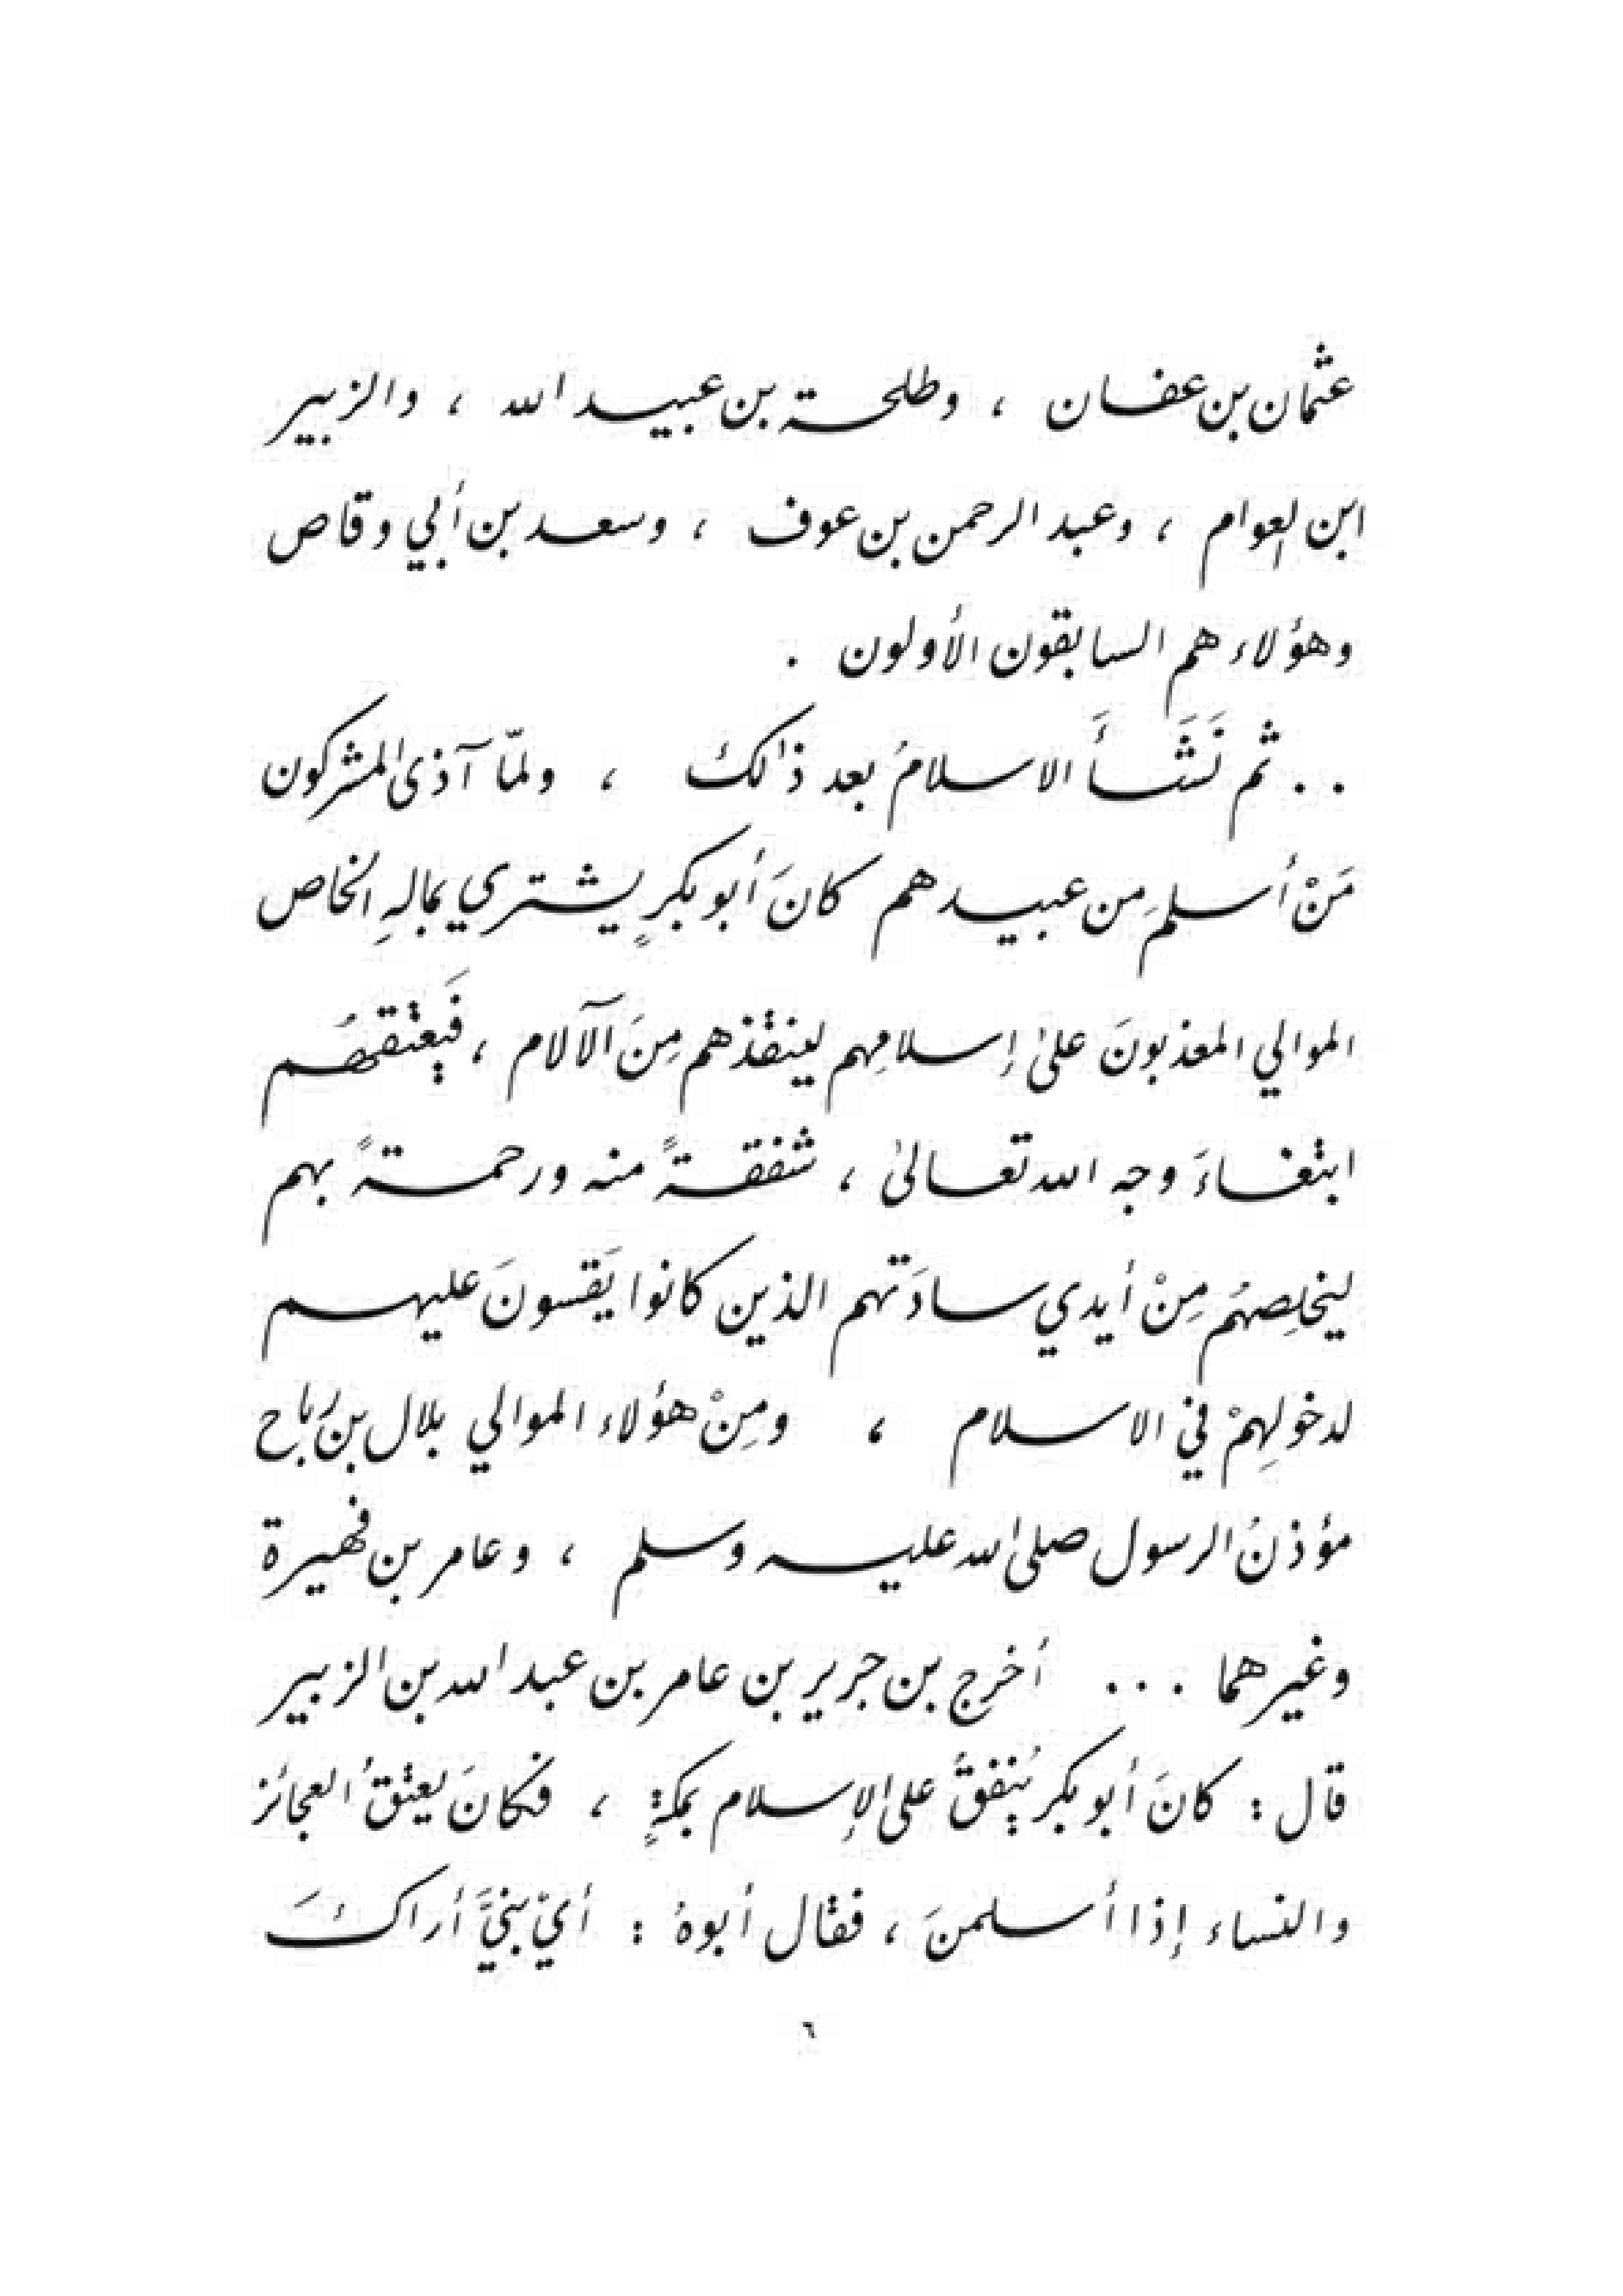 عثمان بن عفان ، وطلحة بن عبيد الله ، والزبير
ابن العوام ، وعبد الرحمن بن عوف ، وسعد بن أبي وقاص
وهؤلاء هم السابقون الأولون .
.. ثم نَشَأَ الاسلامُ بعد ذٰلك ، ولمّا آذى المشركون
مَنْ أسلمَ من عبيدهم كانَ أبو بكرٍ يشتري بمالهِ الخاص
الموالي المعذبونَ علىٰ إسلامِهم لينقذهم مِنَ الآلام ، فَيعتقهُم
ابتغاءَ وجه الله تعالىٰ ، شفقةً منه ورحمةً بهم
ليخلِصهُم مِنْ أيدي سادَتهم الذين كانوا يَقسونَ عليهم
لدخولِهِمْ في الاسلام ، ومِنْ هؤلاء الموالي بلال بن رُباح
مؤذنُ الرسول صلىٰ الله عليه وسلم ، وعامر بن فهيرة
وغيرهما ... أخرج بن جرير بن عامر بن عبد الله بن الزبير
قال : كانَ أبو بكر يُنفقُ علىٰ الإسلام بمكةٍ ، فكانَ يعتقُ العجائز
والنساء إذا أسلمنَ ، فقال أبوهُ : أيْ بنيَّ أراكَ
٦